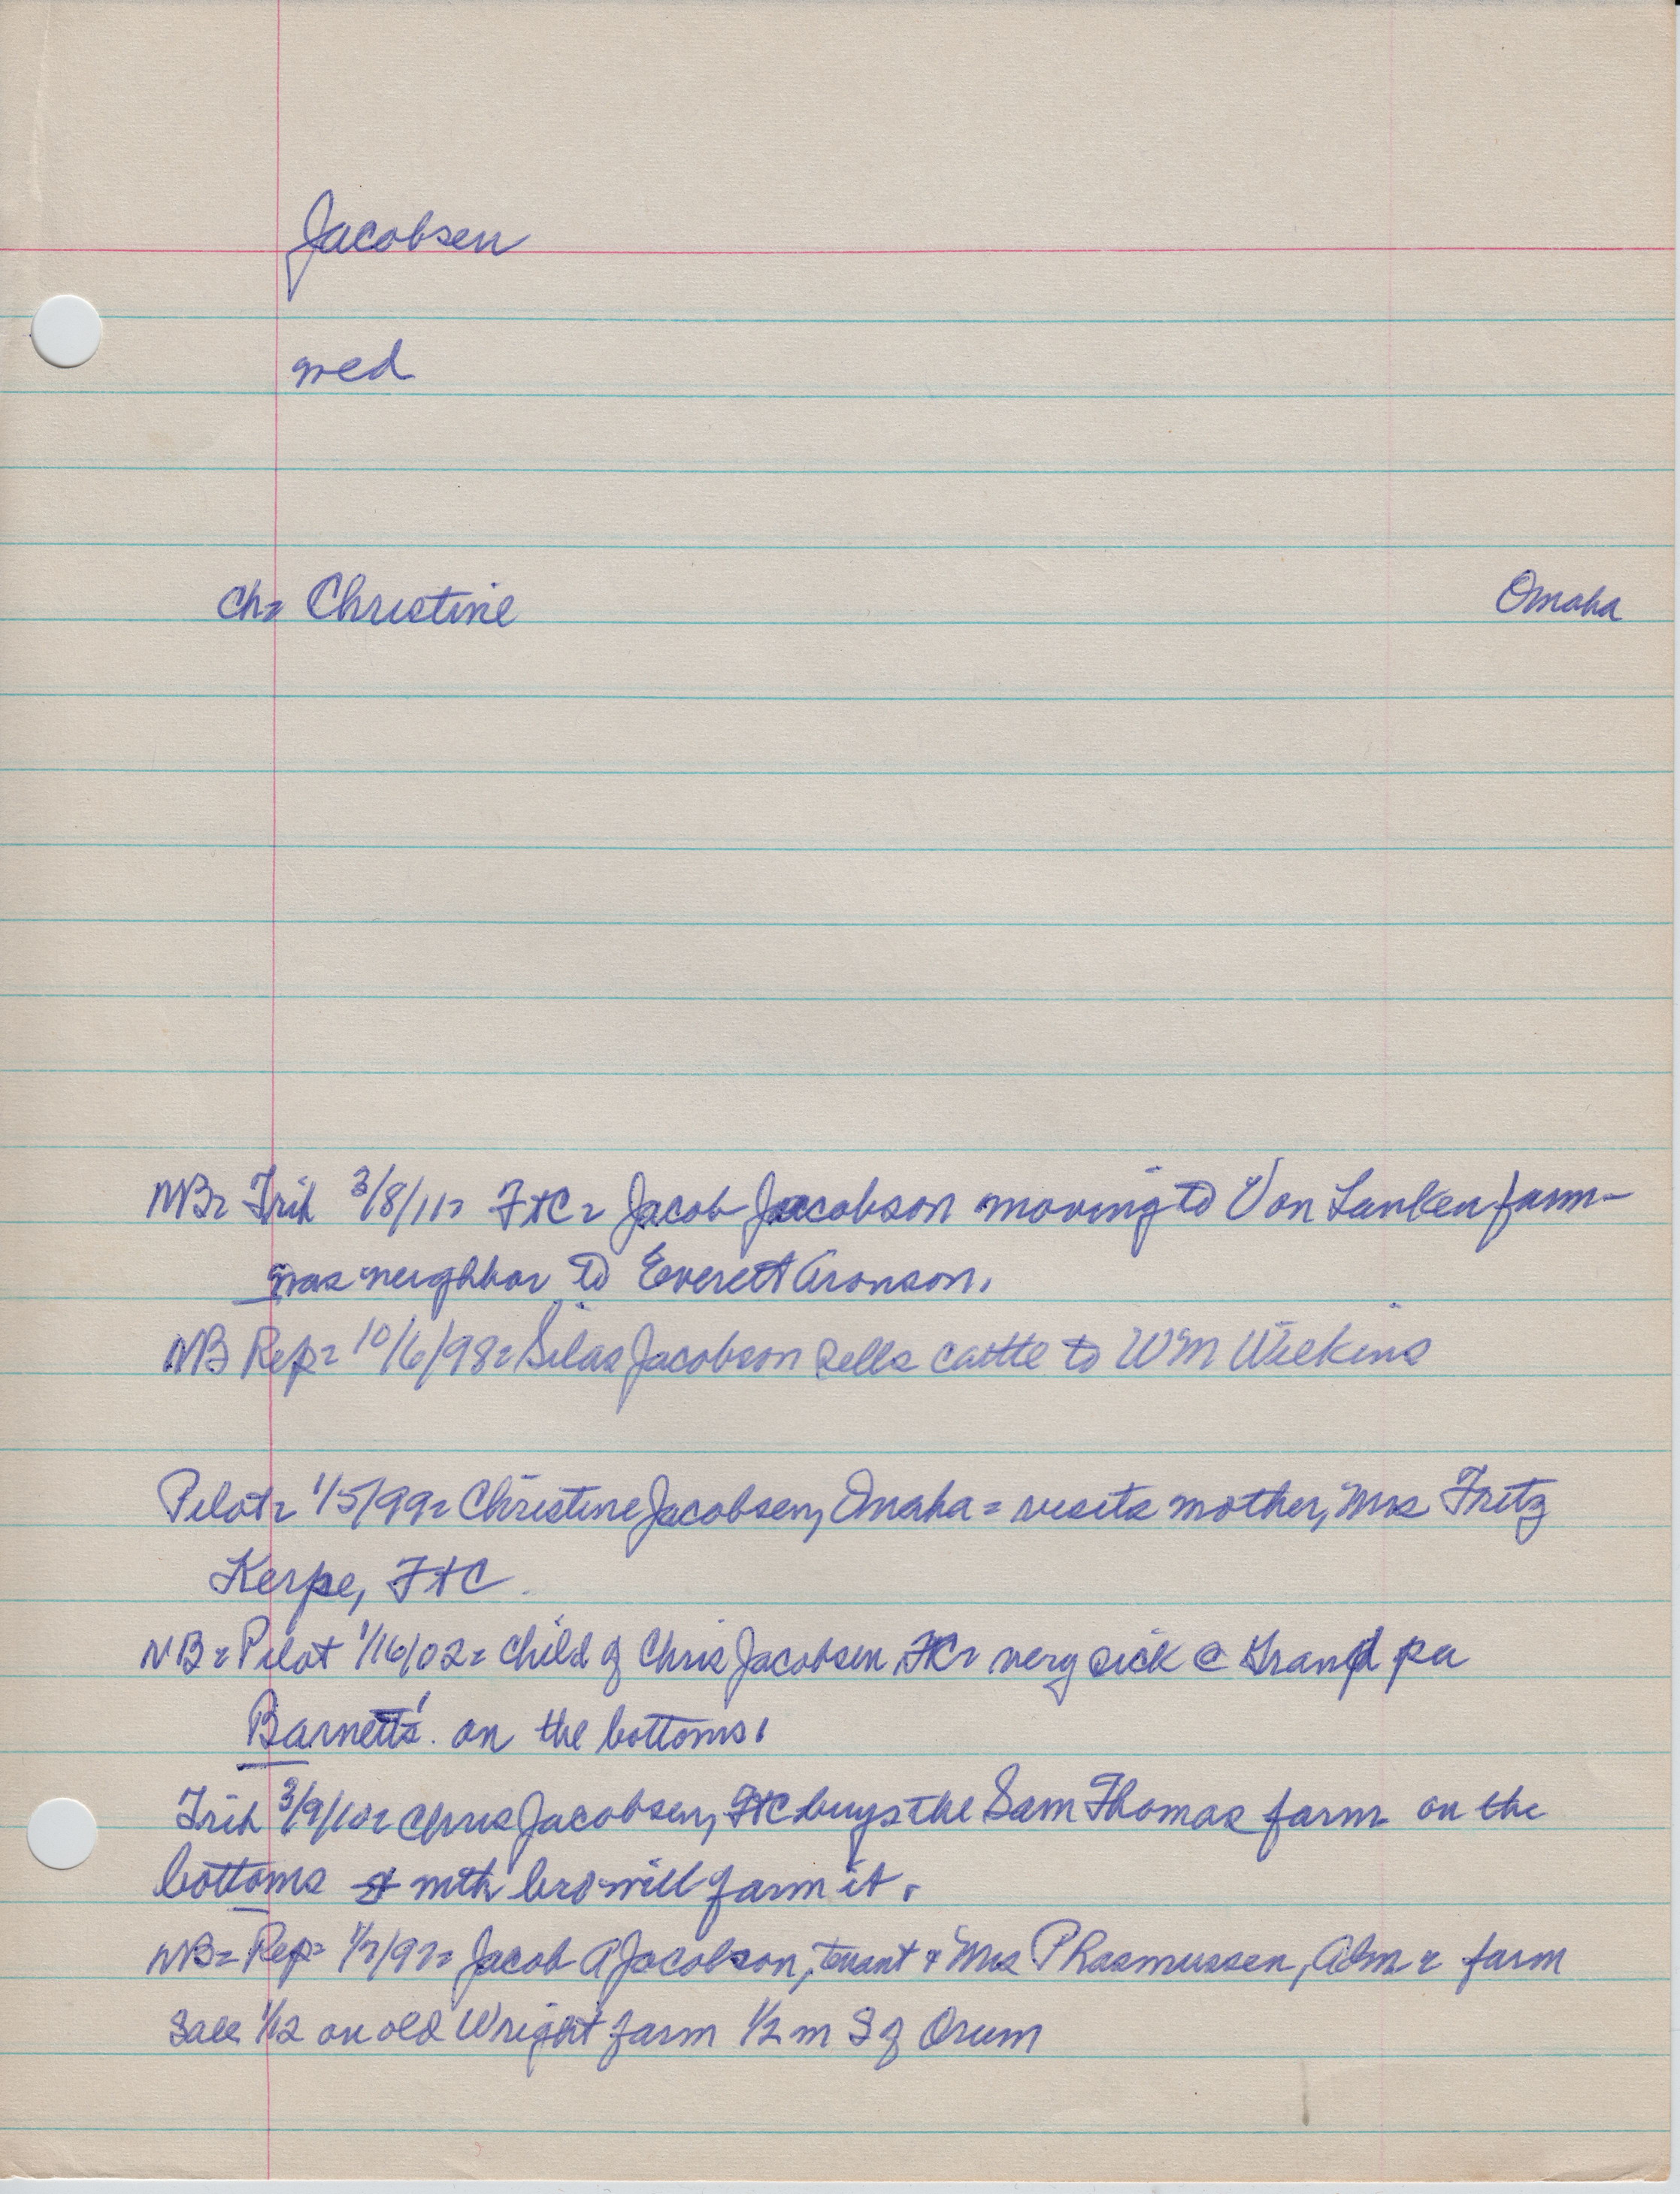 Jacobsen
wed
Ch= Christine Omaha
NB= Trib 3/8/11= FtC= Jacob Jacobson moving to Von Lunken farm -
was neighbor to Everett Aronson.
NB Rep= 10/6/98= Silas Jacobson sells cattle to Wm Wilkins
Pilot= 1/5/99= Christine Jacobsen, Omaha = visits mother, Mrs Fritz
Kerpe, FtC
NB= Pilot 1/16/02= Child of Chris Jacobsen FtC= very sick @ Grand pa
Barnett's on the bottoms.
Trib 3/9/10= Chris Jacobsen, FtC buys the Sam Thomas farm on the
bottoms & with bro will farm it.
NB= Rep= Jacob A Jacobson, tenant & Mrs P Rasmussen, Adm = farm
sale 1/12 on old Wright farm 1/2 m S of Orum